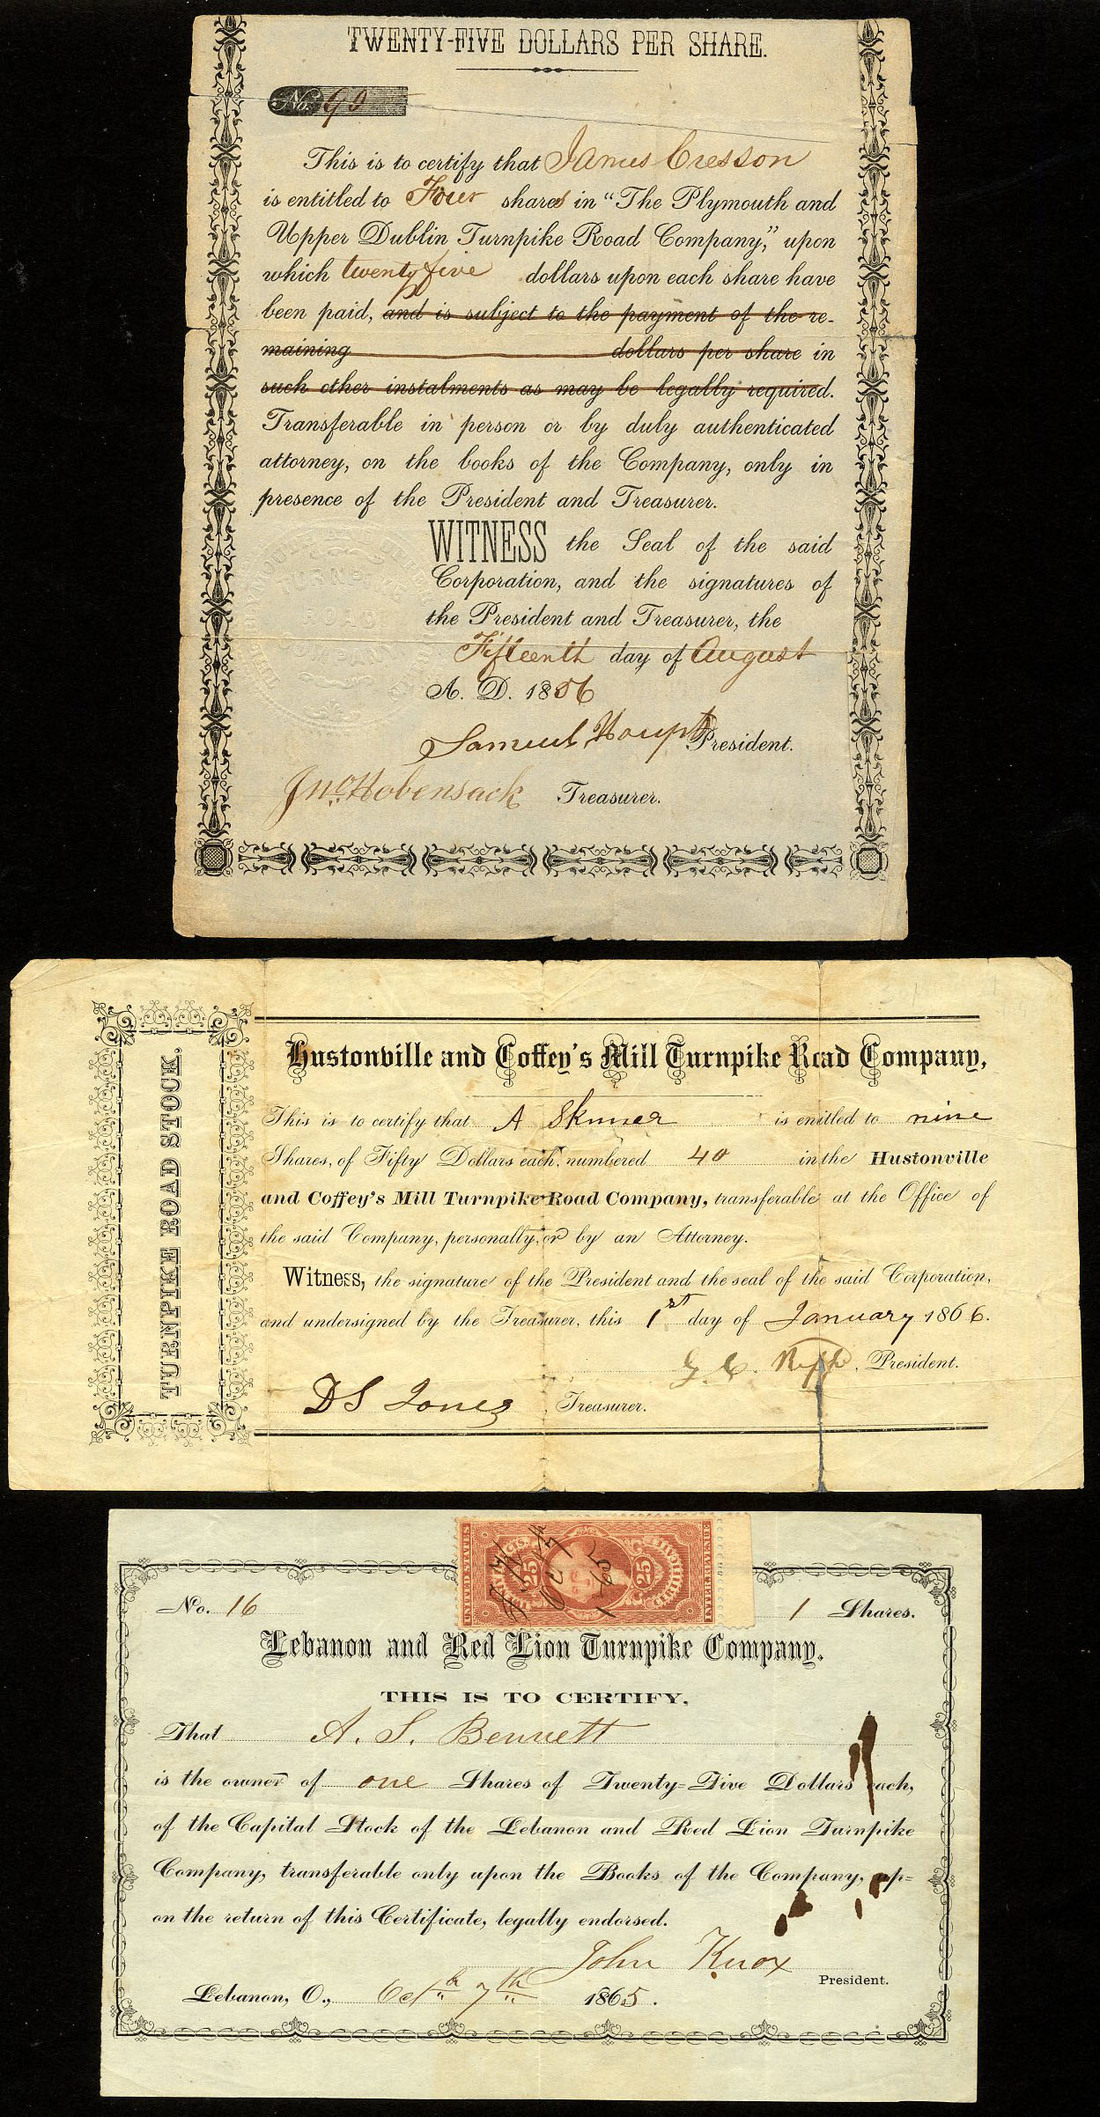 TWENTY-FIVE DOLLARS PER SHARE.
No. 90
This is to certify that James Cresson
is entitled to Four shares in "The Plymouth and
Upper Dublin Turnpike Road Company," upon
which twenty five dollars upon each share have
been paid, and is subject to the payment of the re-
maining dollars per share in
such other instalments as may be legally required.
Transferable in person or by duly authenticated
attorney, on the books of the Company, only in
presence of the President and Treasurer.
WITNESS the Seal of the said
Corporation, and the signatures of
the President and Treasurer, the
Fifteenth day of August
A. D. 1856
Samuel Haupt President.
Jno. Hobensack Treasurer.
TURNPIKE ROAD STOCK.
Hustonville and Coffey's Mill Turnpike Road Company,
This is to certify that A Skinner is enitled to nine
Shares, of Fifty Dollars each, numbered 40 in the Hustonville
and Coffey's Mill Turnpike Road Company, transferable at the Office of
the said Company, personally, or by an Attorney.
Witness, the signature of the President and the seal of the said Corporation,
and undersigned by the Treasurer, this 1st day of January 1866.
President.
D S Jones Treasurer.
UNITED STATES
INTER. REVENUE
25
25
No. 16
1 Shares.
Lebanon and Red Lion Turnpike Company.
THIS IS TO CERTIFY,
That A. S. Bennett
is the owner of one Shares of Twenty-Five Dollars each,
of the Capital Stock of the Lebanon and Red Lion Turnpike
Company, transferable only upon the Books of the Company, up-
on the return of this Certificate, legally endorsed.
John Knox President.
Lebanon, O., Oct 7th 1865.